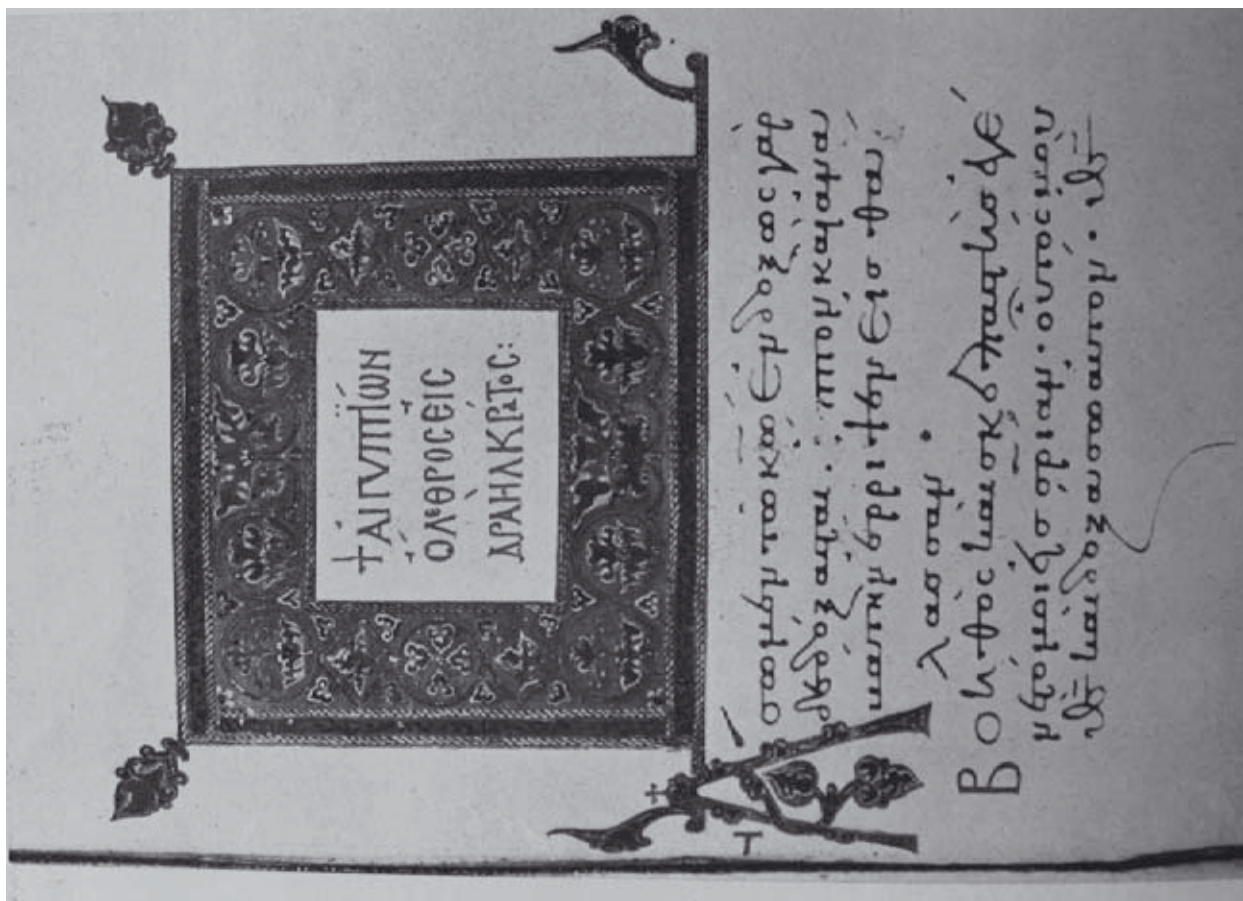 + ΑΙΓΥΠΤΙΩΝ
ΟΛΕΘΡΟΣ ΕΙΣ
ΔΡΑΗΛ ΚΡΑΤΟΣ:
Ἄσωμεν τῶ κ̅ω̅ ἐνδόξως γὰρ
δεδόξασται: ἵππον καὶ ἀναβά
την ἔρριψεν εἰς θά
λασσαν·
Βοηθὸς καὶ σκεπαστὴς ἐγέ
νετό μοι εἰς σωτηρίαν· οὗτός μου
θ̅ς̅ καὶ δοξάσω αὐτόν· θ̅ς̅